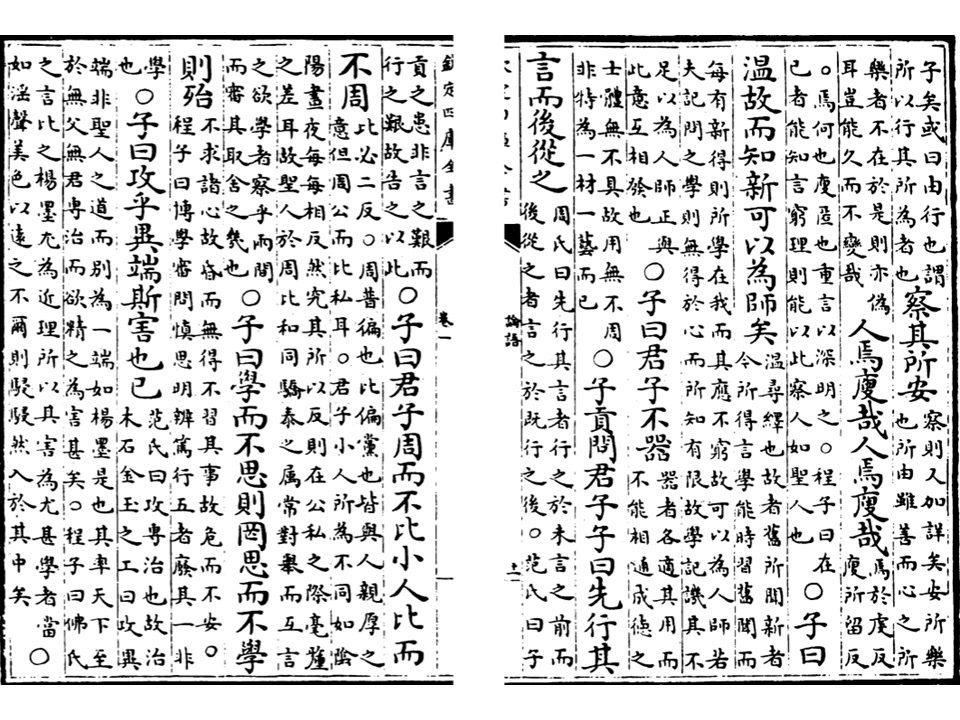 子矣或曰由行也謂所以行其所為者也察其所安察則又加詳矣安所樂也所由雖善而心之所
樂者不在於是則亦偽耳豈能久而不變哉人焉廋哉人焉廋哉焉於虔反廋所留反
〇焉何也廋匿也重言以深明之〇程子曰在己者能知言窮理則能以此察人如聖人也〇子曰
溫故而知新可以為師矣溫尋繹也故者舊所聞新者今所得言學能時習舊聞而
每有新得則所學在我而其應不窮故可以為人師若夫記問之學則無得於心而所知有限故學記譏其不
足以為人師正與此意互相發也〇子曰君子不器器者各適其用而不能相通成德之
士體無不具故用無不周非特為一材一藝而已〇子貢問君子子曰先行其
言而後從之周氏曰先行其言者行之於未言之前而後從之者言之於既行之後〇范氏曰子
論語
十一
欽定四庫全書
卷一
貢之患非言之艱而行之艱故告之以此〇子曰君子周而不比小人比而
不周比必二反〇周普徧也比偏黨也皆與人親厚之意但周公而比私耳〇君子小人所為不同如陰
陽晝夜每每相反然究其所以反則在公私之際毫釐之差耳故聖人於周比和同驕泰之属常對舉而互言
之欲學者察乎兩間而審其取舍之幾也〇子曰學而不思則罔思而不學
則殆不求諸心故昏而無得不習其事故危而不安〇程子曰博學審問慎思明辨篤行五者廢其一非
學也〇子曰攻乎異端斯害也已范氏曰攻專治也故治木石金玉之工曰攻異
端非聖人之道而別為一端如楊墨是也其率天下至於無父無君專治而欲精之為害甚矣〇程子曰佛氏
之言比之楊墨尤為近理所以其害為尤甚學者當如淫聲美色以遠之不爾則駸駸然入於其中矣〇